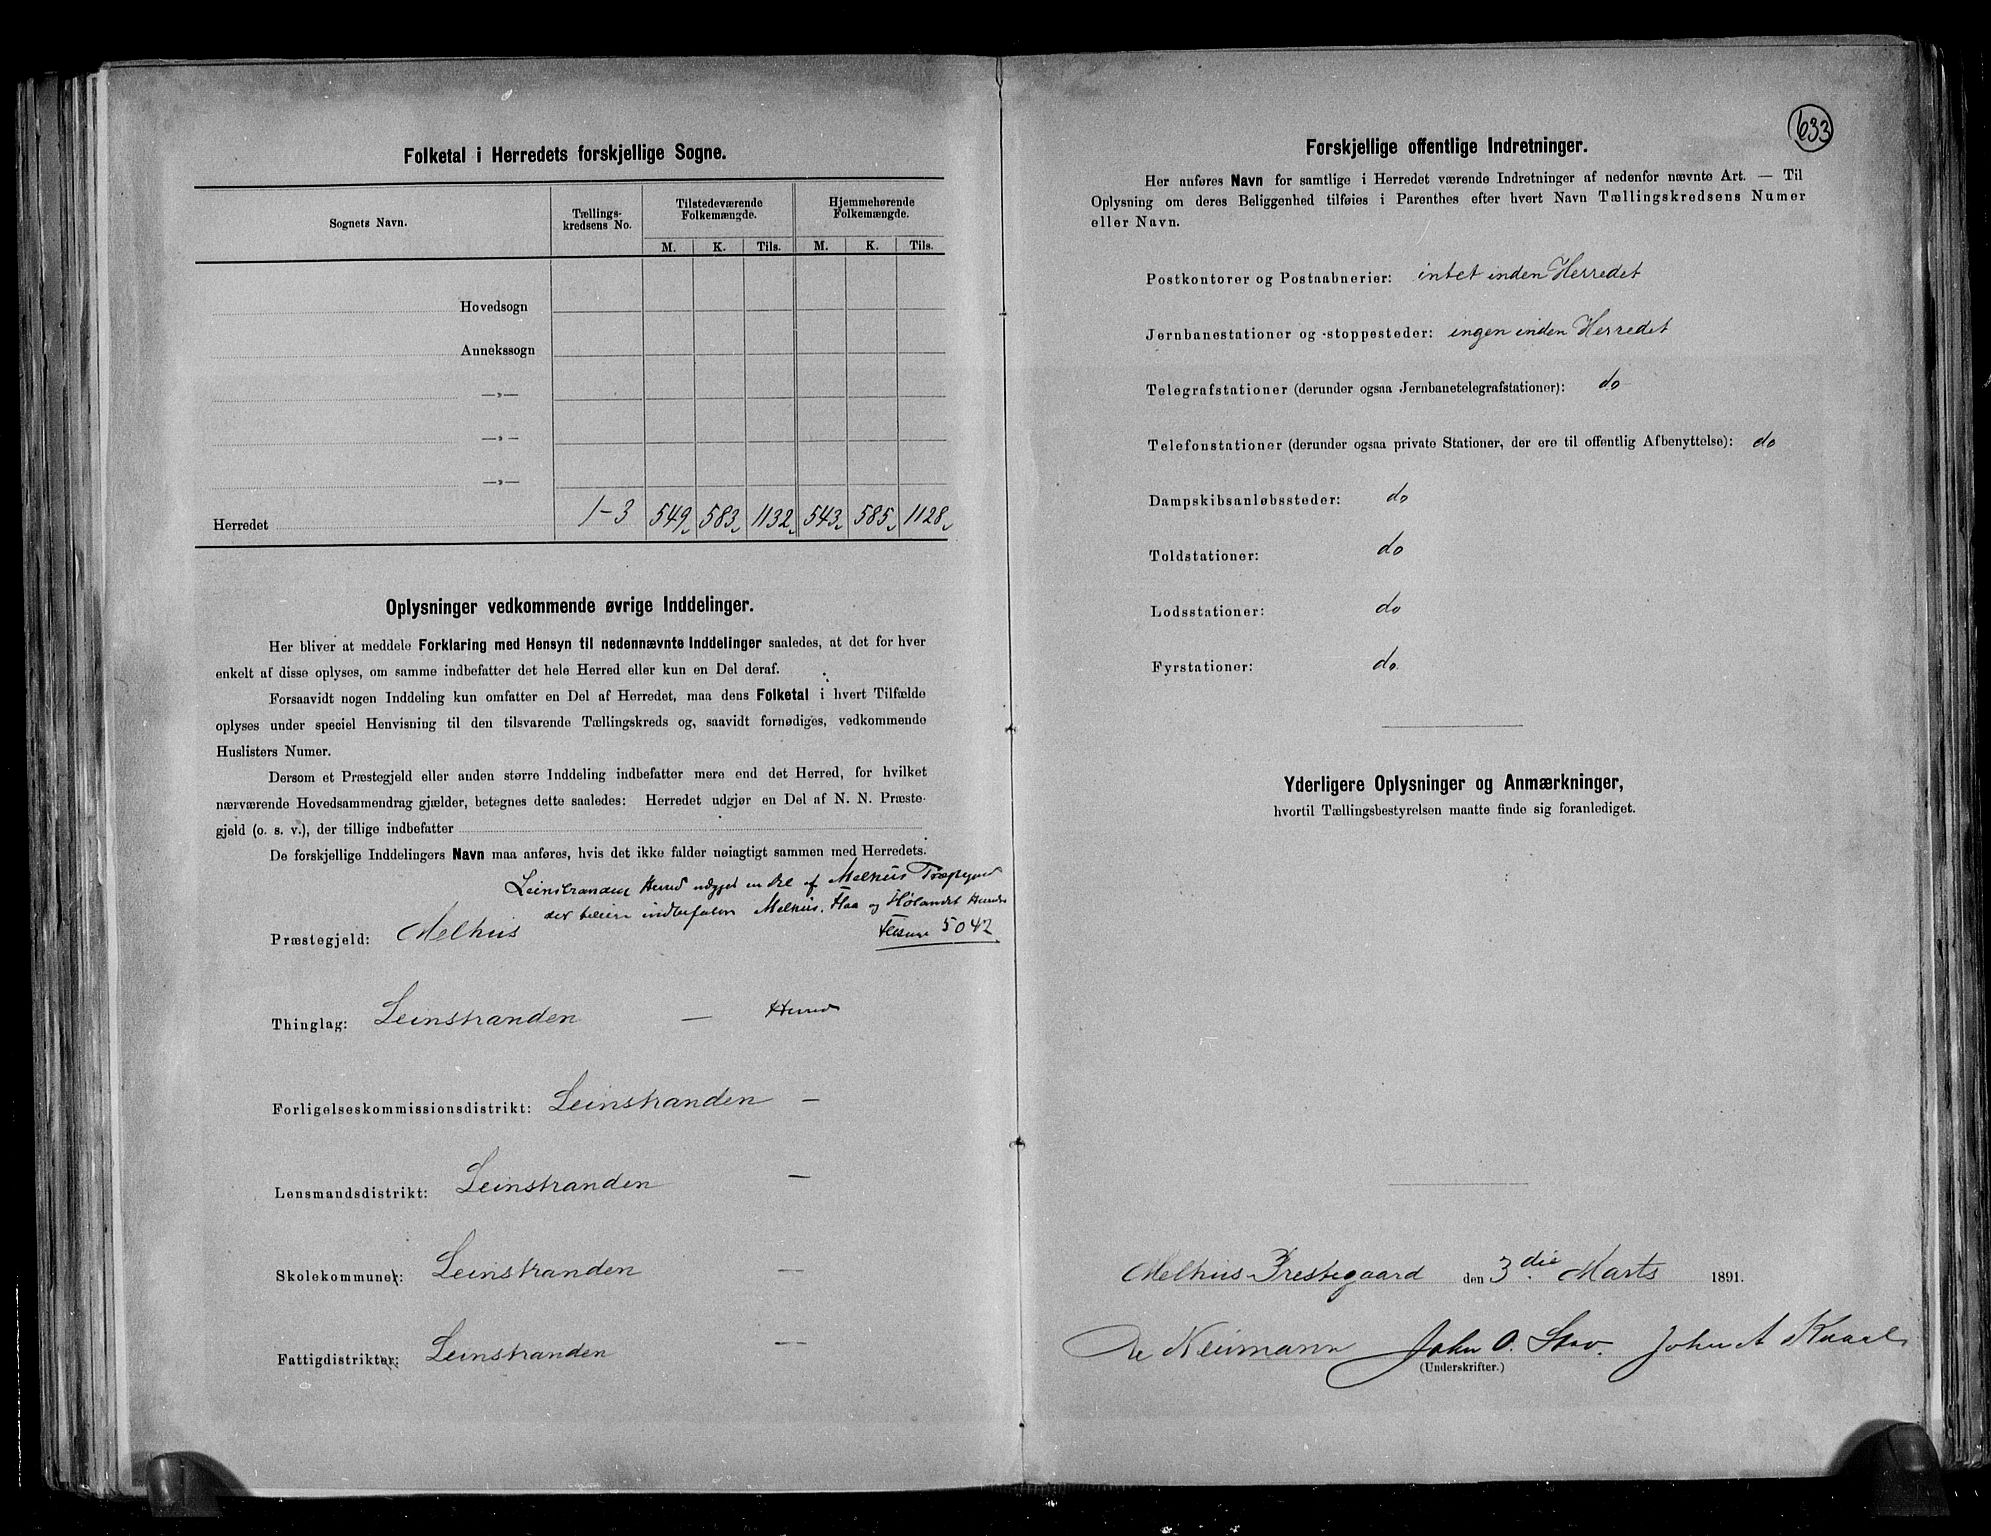 Folketal i Herredets forskjellige Sogne.
Sognets Navn.
Tællings-
kredsens No.
Tilstedeværende
Folkemængde.
Hjemmehørende
Folkemængde.
M. K. Tils. M. K. Tils.
Hovedsogn
Annekssogn
—„—
—„—
—„—
Herredet 1-3 549 583 1132 543 585 1128
Oplysninger vedkommende øvrige Inddelinger.
Her bliver at meddele Forklaring med Hensyn til nedennævnte Inddelinger saaledes, at det for hver
enkelt af disse oplyses, om samme indbefatter det hele Herred eller kun en Del deraf.
Forsaavidt nogen Inddeling kun omfatter en Del af Herredet, maa dens Folketal i hvert Tilfælde
oplyses under speciel Henvisning til den tilsvarende Tællingskreds og, saavidt fornødiges, vedkommende
Huslisters Numer.
Dersom et Præstegjeld eller anden større Inddeling indbefatter mere end det Herred, for hvilket
nærværende Hovedsammendrag gjælder, betegnes dette saaledes: Herredet udgjør en Del af N. N. Præste-
gjeld (o. s. v.), der tillige indbefatter
De forskjellige Inddelingers Navn maa anføres, hvis det ikke falder nøiagtigt sammen med Herredets.
Leinstrandens Herred udgjør en Del af Melhus
indbefatter Melhus, Flaa og Hølandet
5042
Præstegjeld: Melhus
Thinglag: Leinstranden — Herred
Forligelseskommissionsdistrikt: Leinstranden —
Lensmandsdistrikt: Leinstranden —
Skolekommuner: Leinstranden —
Fattigdistrikter: Leinstranden —
633
Forskjellige offentlige Indretninger.
Her anføres Navn for samtlige i Herredet værende Indretninger af nedenfor nævnte Art. — Til
Oplysning om deres Beliggenhed tilføies i Parenthes efter hvert Navn Tællingskredsens Numer
eller Navn.
Postkontorer og Postaabnerier: intet inden Herredet
Jernbanestationer og -stoppesteder: ingen inden Herredet
Telegrafstationer (derunder ogsaa Jernbanetelegrafstationer): do
Telefonstationer (derunder ogsaa private Stationer, der ere til offentlig Afbenyttelse): do
Dampskibsanløbssteder: do
Toldstationer: do
Lodsstationer: do
Fyrstationer: do.
Yderligere Oplysninger og Anmærkninger,
hvortil Tællingsbestyrelsen maatte finde sig foranlediget.
Melhus Prestegaard den 3die Marts 1891.
Neumann John O. Stav.
(Underskrifter.)